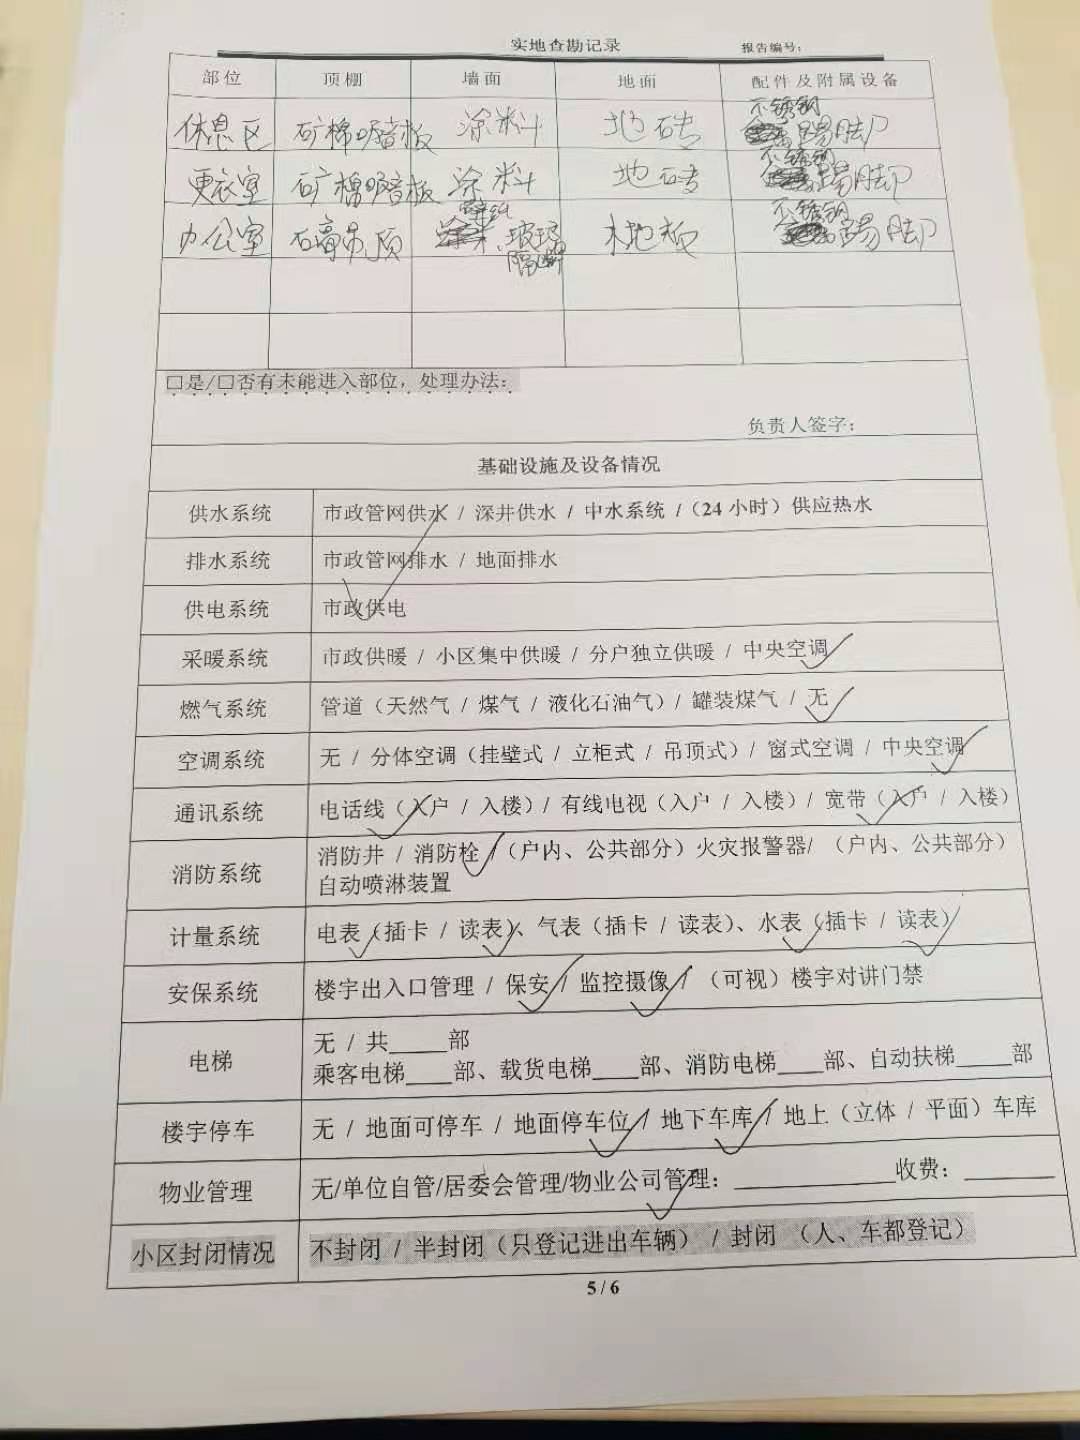 实地查勘记录 报告编号：
部位 顶棚 墙面 地面 配件及附属设备
不锈钢
休息区 矿棉吸音板 涂料 地砖 踢脚
不锈钢
更衣室 矿棉吸音板 涂料 地砖 踢脚
壁纸 不锈钢
办公室 石膏吊顶 、玻璃 木地板 踢脚
隔断
□是/□否有未能进入部位，处理办法：
负责人签字：
基础设施及设备情况
供水系统 市政管网供水 / 深井供水 / 中水系统 /（24 小时）供应热水
排水系统 市政管网排水 / 地面排水
供电系统 市政供电
采暖系统 市政供暖 / 小区集中供暖 / 分户独立供暖 / 中央空调
燃气系统 管道（天然气 / 煤气 / 液化石油气）/ 罐装煤气 / 无
空调系统 无 / 分体空调（挂壁式 / 立柜式 / 吊顶式）/ 窗式空调 / 中央空调
通讯系统 电话线（入户 / 入楼）/ 有线电视（入户 / 入楼）/ 宽带（入户 / 入楼）
消防系统 消防井 / 消防栓 /（户内、公共部分）火灾报警器/ （户内、公共部分）
自动喷淋装置
计量系统 电表（插卡 / 读表）、气表（插卡 / 读表）、水表（插卡 / 读表）
安保系统 楼宇出入口管理 / 保安 / 监控摄像 / （可视）楼宇对讲门禁
电梯 无 / 共____部
乘客电梯____部、载货电梯____部、消防电梯____部、自动扶梯_____部
楼宇停车 无 / 地面可停车 / 地面停车位 / 地下车库 / 地上（立体 / 平面）车库
物业管理 无/单位自管/居委会管理/物业公司管理：______________收费：________
小区封闭情况 不封闭 / 半封闭（只登记进出车辆） / 封闭 （人、车都登记）
5 / 6